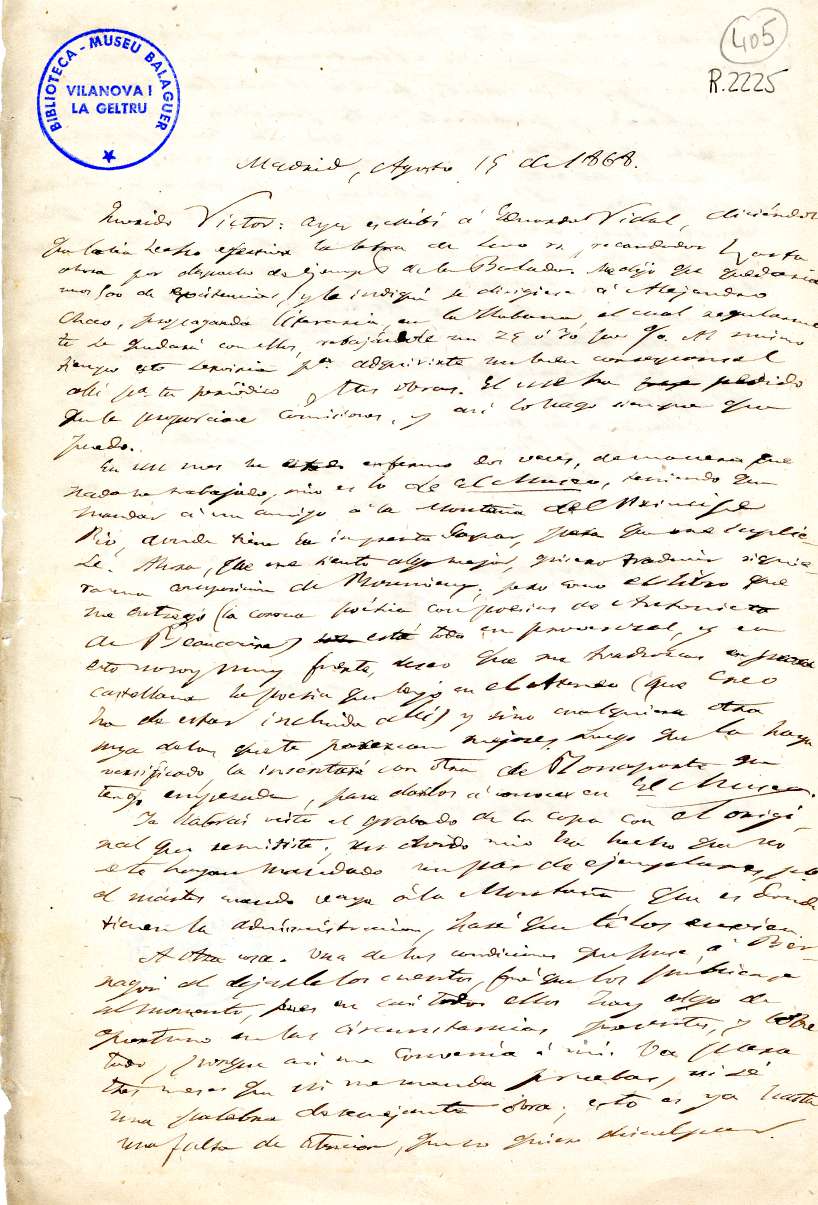 405
R.2225
BIBLIOTECA - MUSEU BALAGUER
VILANOVA I
LA GELTRU
Madrid, Agosto 15 de 1868.
Querido Victor: ayer escribí á Eduardo Vidal, diciéndole
que habia hecho efectiva la letra de recaudados hasta
ahora por despacho de ejemp.s de las Baladas. Me dijo que quedarian
mos 500 de existencias, y le indiqué se dirigiera á Alejandro
Chao, propaganda literaria, en la Habana, el cual regularmen
te se quedará con ellos, rebajándole un 25 ó 30 por %. Al mismo
tiempo esto serviria p.a adquirirte un buen corresponsal
allí p.a tu periódico y tus obras. El me ha pedido
que le proporcione comisiones, y así lo hago siempre que
puedo.
En un mes he estado enfermo dos veces, de manera que
nada he trabajado, sino es lo de el Museo, teniendo que
mandar á un amigo á la Montaña del Principe
Pio, donde tiene la imprenta Gaspar, para que me suplie-
se. Ahora, que me siento algo mejor, quisiera traducir siquie
ra una composicion de Roumieux; pero como el libro que
me entregó (la corona poética con poesias de Antonieta
de Beaucaire) está todo en provenzal, y en
esto no soy muy fuerte, deseo que me traduzcas en prosa
castellana la poesia que leyó en el Ateneo (que creo
ha de estar incluida allí) y sino cualquiera otra
suya de las que te parezcan mejores. Luego que la haya
versificado, la insertaré con otra de Bonaparte que
tengo empezada, para darlos á conocer en El Museo.
Ya habrás visto el grabado de la copa con el origi-
nal que remitiste; un olvido mio ha hecho que no
te hayan mandado un par de ejemplares, pero
el mártes cuando vaya á la Montaña que es donde
tienen la administracion, haré que te los envien.
A otra cosa. Una de las condiciones que puse á Ber-
nagosi al dejarle los cuentos, fué que los publicase
al momento, pues en casi todos ellos hay algo de
oportuno en las circunstancias presentes, y sobre
todo, porque así me convenía á mí. Va para
tres meses que ni me manda pruebas, ni sé
una palabra de semejante obra; esto es ya hasta
una falta de atencion, que no quiero disculpar.